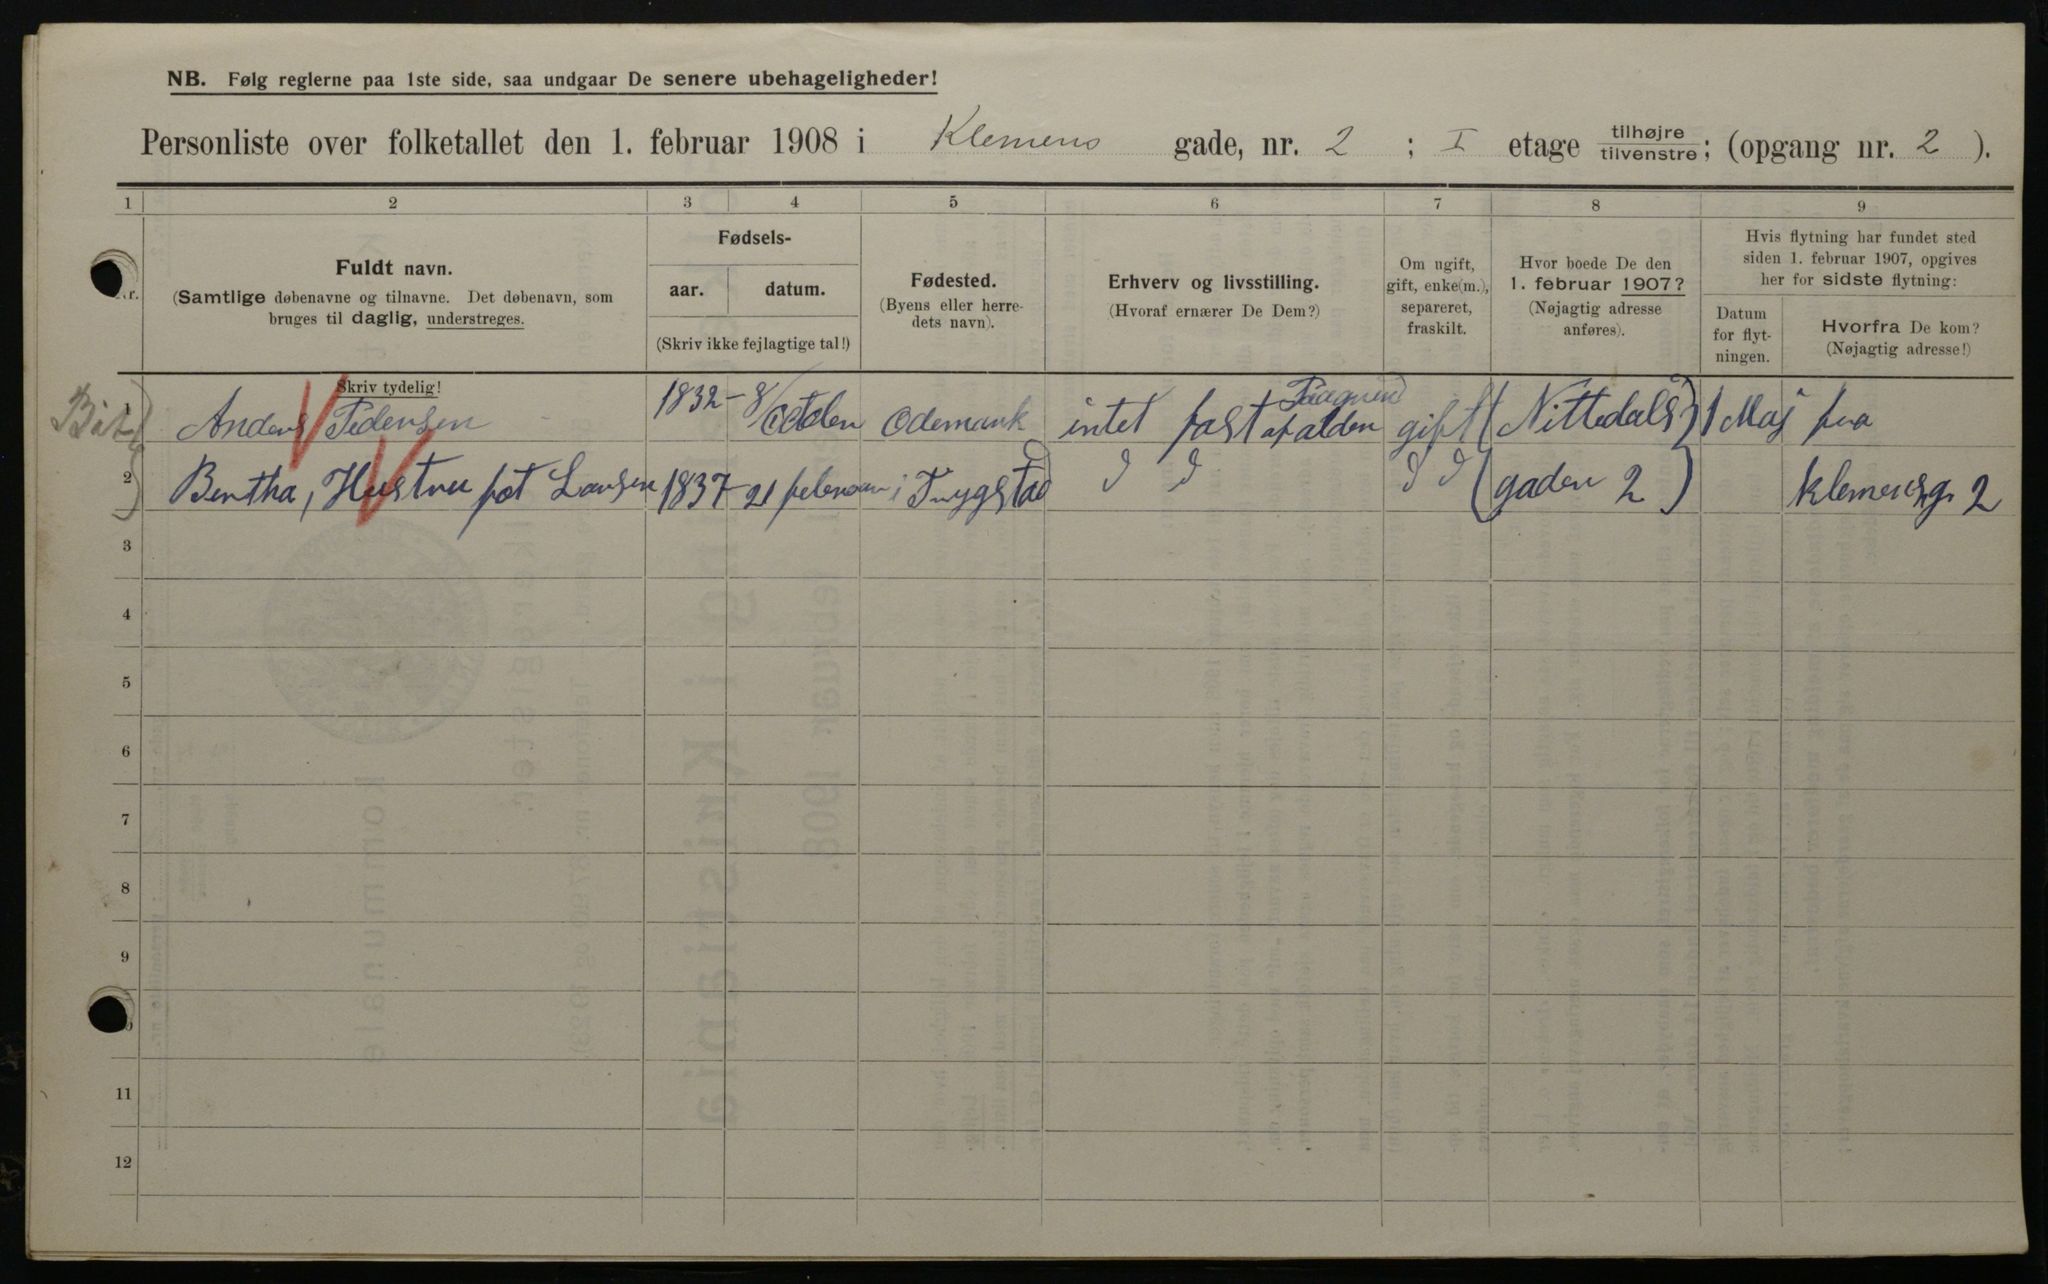 NB. Følg reglerne paa 1ste side, saa undgaar De senere ubehageligheder!
Personliste over folketallet den 1. februar 1908 i Klemens gade, nr. 2 ; I etage tilhøjre/tilvenstre; (opgang nr. 2 ).
1 2 3 4 5 6 7 8 9
Nr.
Fuldt navn.
(Samtlige døbenavne og tilnavne. Det døbenavn, som
bruges til daglig, understreges.
Skriv tydelig!
Fødsels-
aar. datum.
(Skriv ikke fejlagtige tal!)
Fødested.
(Byens eller herre-
dets navn).
Erhverv og livsstilling.
(Hvoraf ernærer De Dem?)
Om ugift,
gift, enke(m.),
separeret,
fraskilt.
Hvor boede De den
1. februar 1907?
(Nøjagtig adresse
anføres).
Hvis flytning har fundet sted
siden 1. februar 1907, opgives
her for sidste flytning:
Datum
for flyt-
ningen.
Hvorfra De kom?
(Nøjagtig adresse!)
1 Anders Pedersen 1832 - 8/ Octder Odemark intet fast af alder gift (Nittedals) 1 Maj fra
2 Bertha, Hustru föt Larsen 1837 - 21 februar i Trygstad (gaden 2) Klemensg. 2
3
4
5
6
7
8
9
11
12